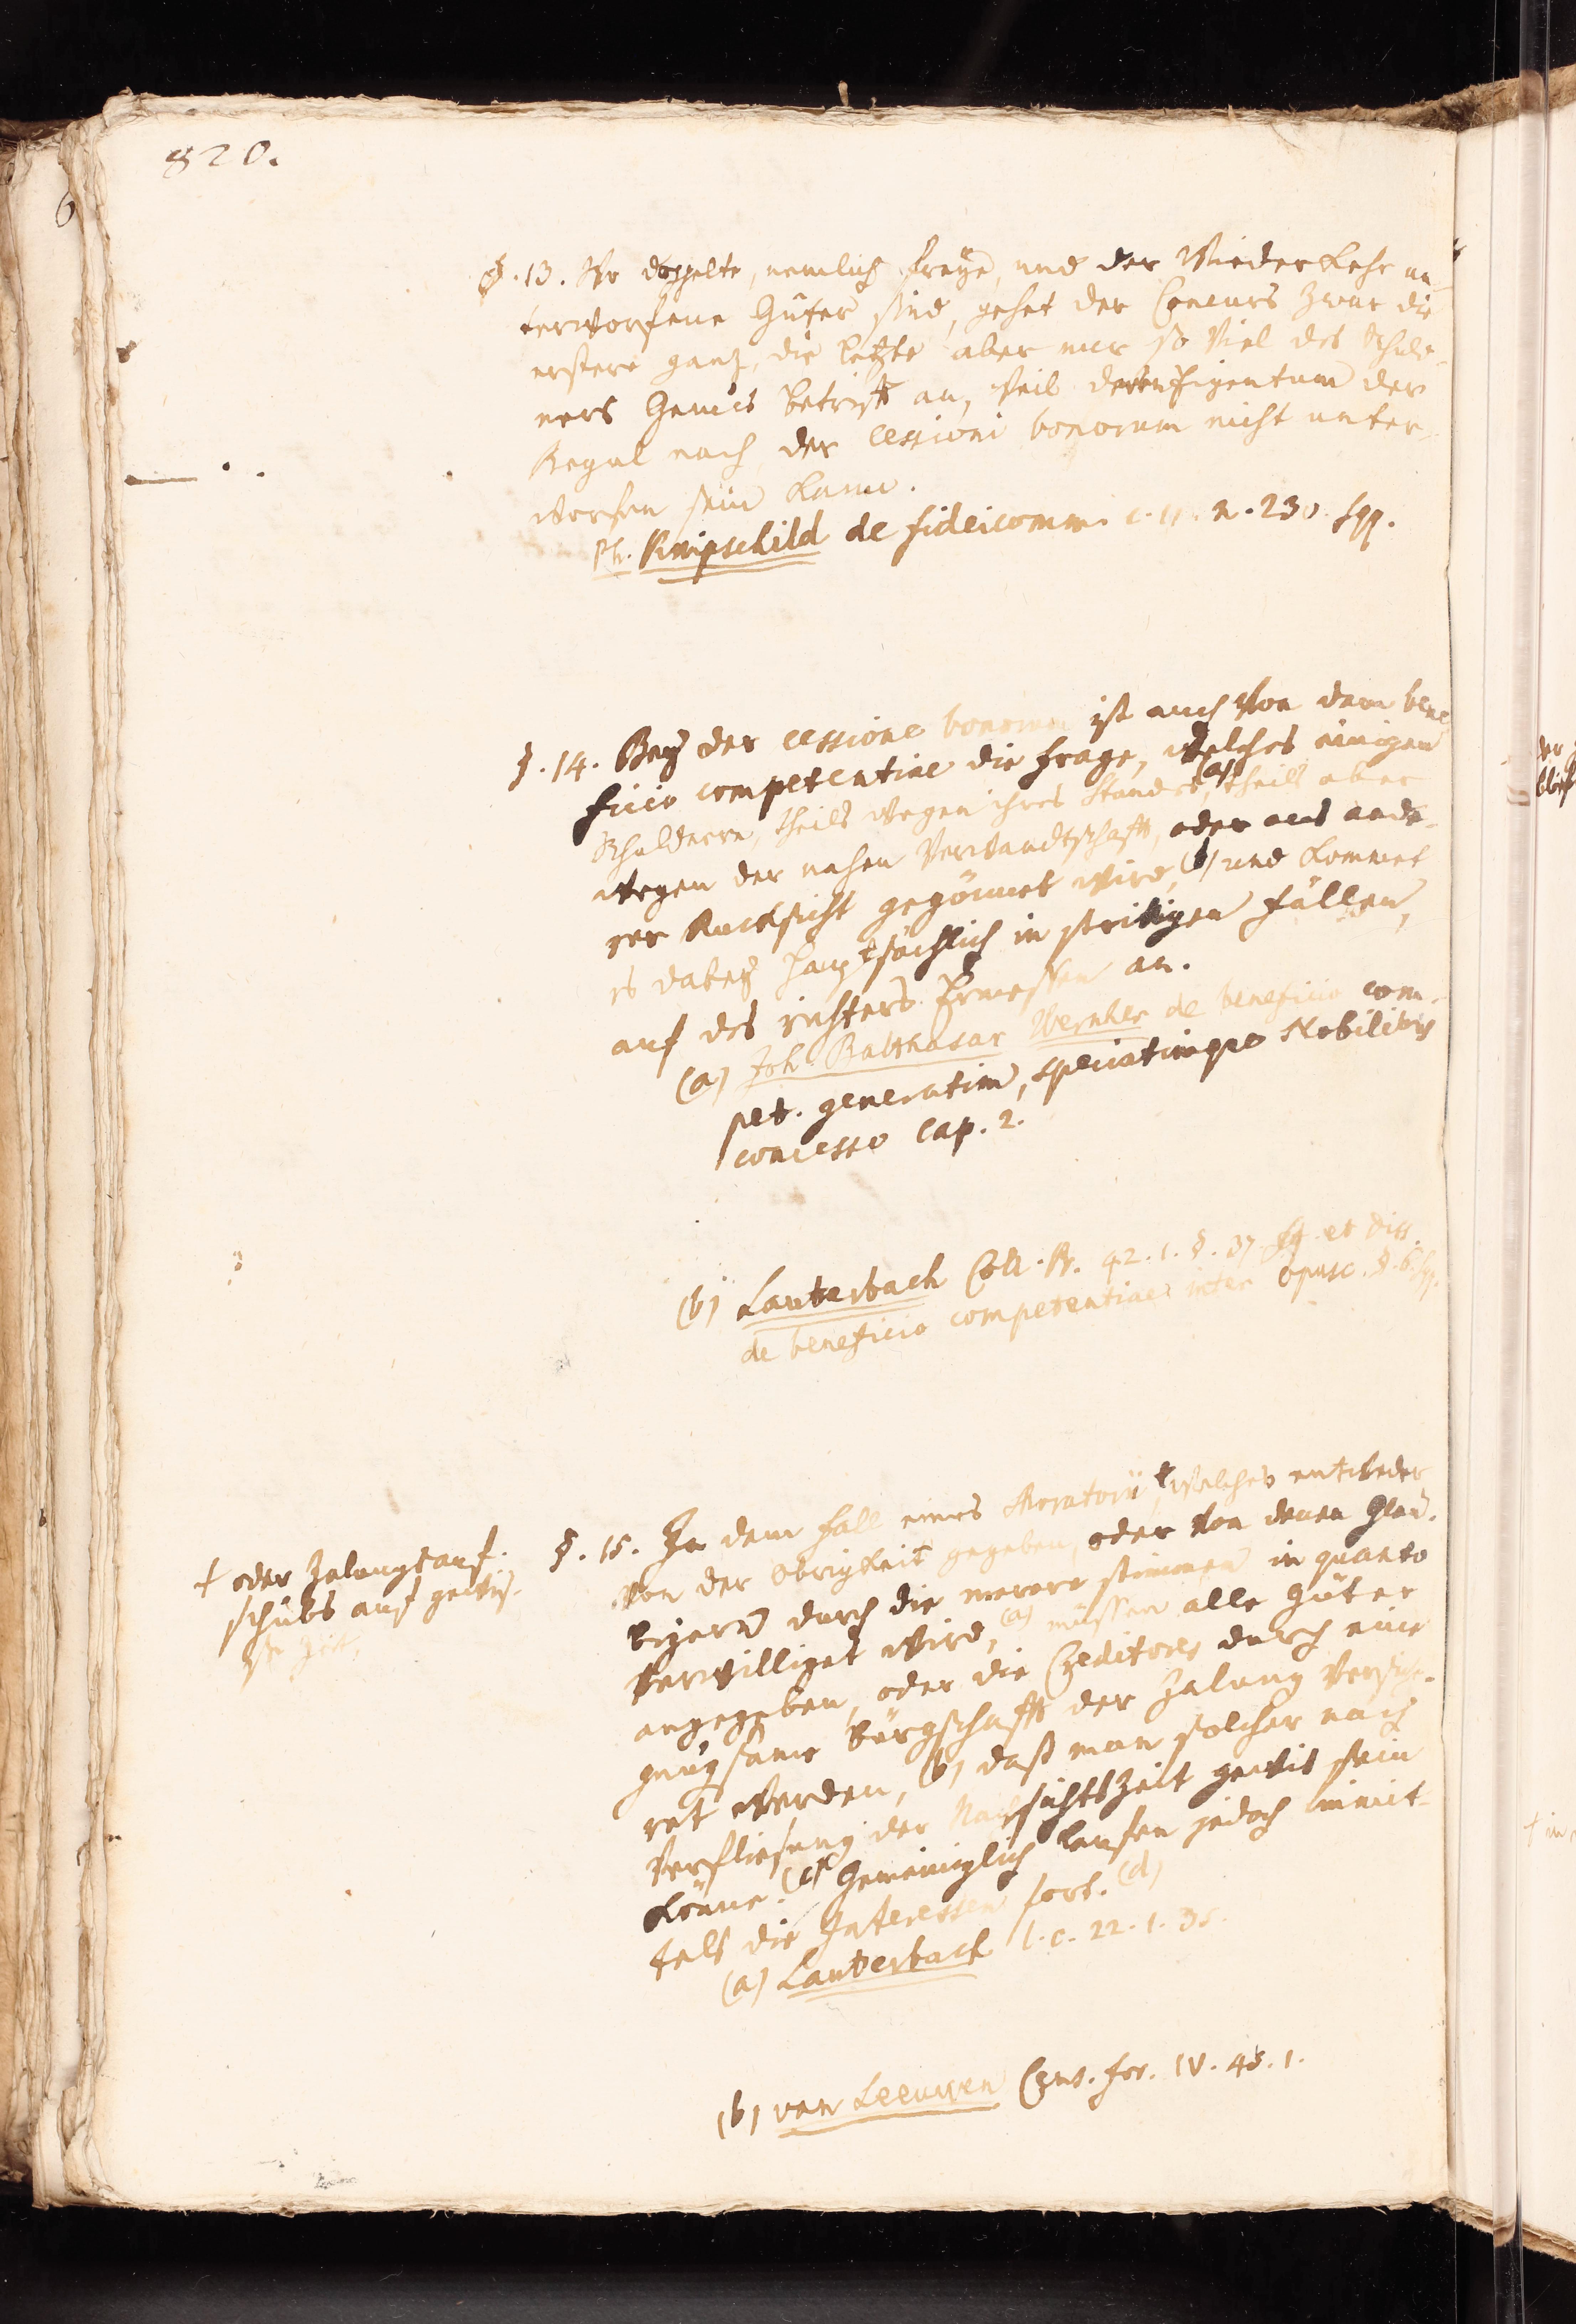 820.
§. 13. Wo doppelte, nemlich freye, und der Wiederkehr un¬
terworfene Güter sind, gehet der Concurs zwar die
erstere ganz, die letzte aber nur so viel des Schuld¬
ners Genus betrifft an, weil deren Eigentum der
Regul nach, der cessioni bonorum nicht unter¬
worfen sein kann.
Ph. Knipschild de fideicomm. c. 11. n. 230. sqq.
§. 14. Bey der cessione bonorum ist auch von dem bene
ficio competentiae die Frage, welches einigen
Schuldnern, theils wegen ihres Standes, (a) theils aber
wegen der nahen Verwandtschafft, oder aus ande¬
rer Rucksicht gegönnet wird, (b) und kommet
es dabey hauptsächlich in stritigen Fällen,
auf des richters Ermessen an.
(a) Joh. Balthasar Wernher de beneficio com¬
pet. generatim, speciatimque Nobilibus
concesso Cap. 2.
(b) Lauterbach Coll. Pr. 42. 1. §. 37. sq. et Diss.
de beneficio competentiae inter Opusc. §. 6. sq.
§. 15. In dem Fall eines Moratorii, + welches entweder
von der Obrigkeit gegeben, oder von denen Gläu¬
bigern durch die merere stimmen in quanto
verwilliget wird, (a) müssen alle Güter
angegeben, oder die Creditores durch eine
gnugsame Bürgschafft der Zalung versiche¬
ret werden, (b) daß man solcher nach
Verfliesung der Nachsichtszeit gewis sein
könne. (c) Gemeiniglich laufen jedoch inmit¬
tels die Interessen fort. (d)
(a) Lauterbach l. c. 22. 1. 35.
(b) van Leeuwen Cens. for. IV. 43. 1.
+ oder Zalungsauf¬
schubs auf gewis¬
se Zeit,